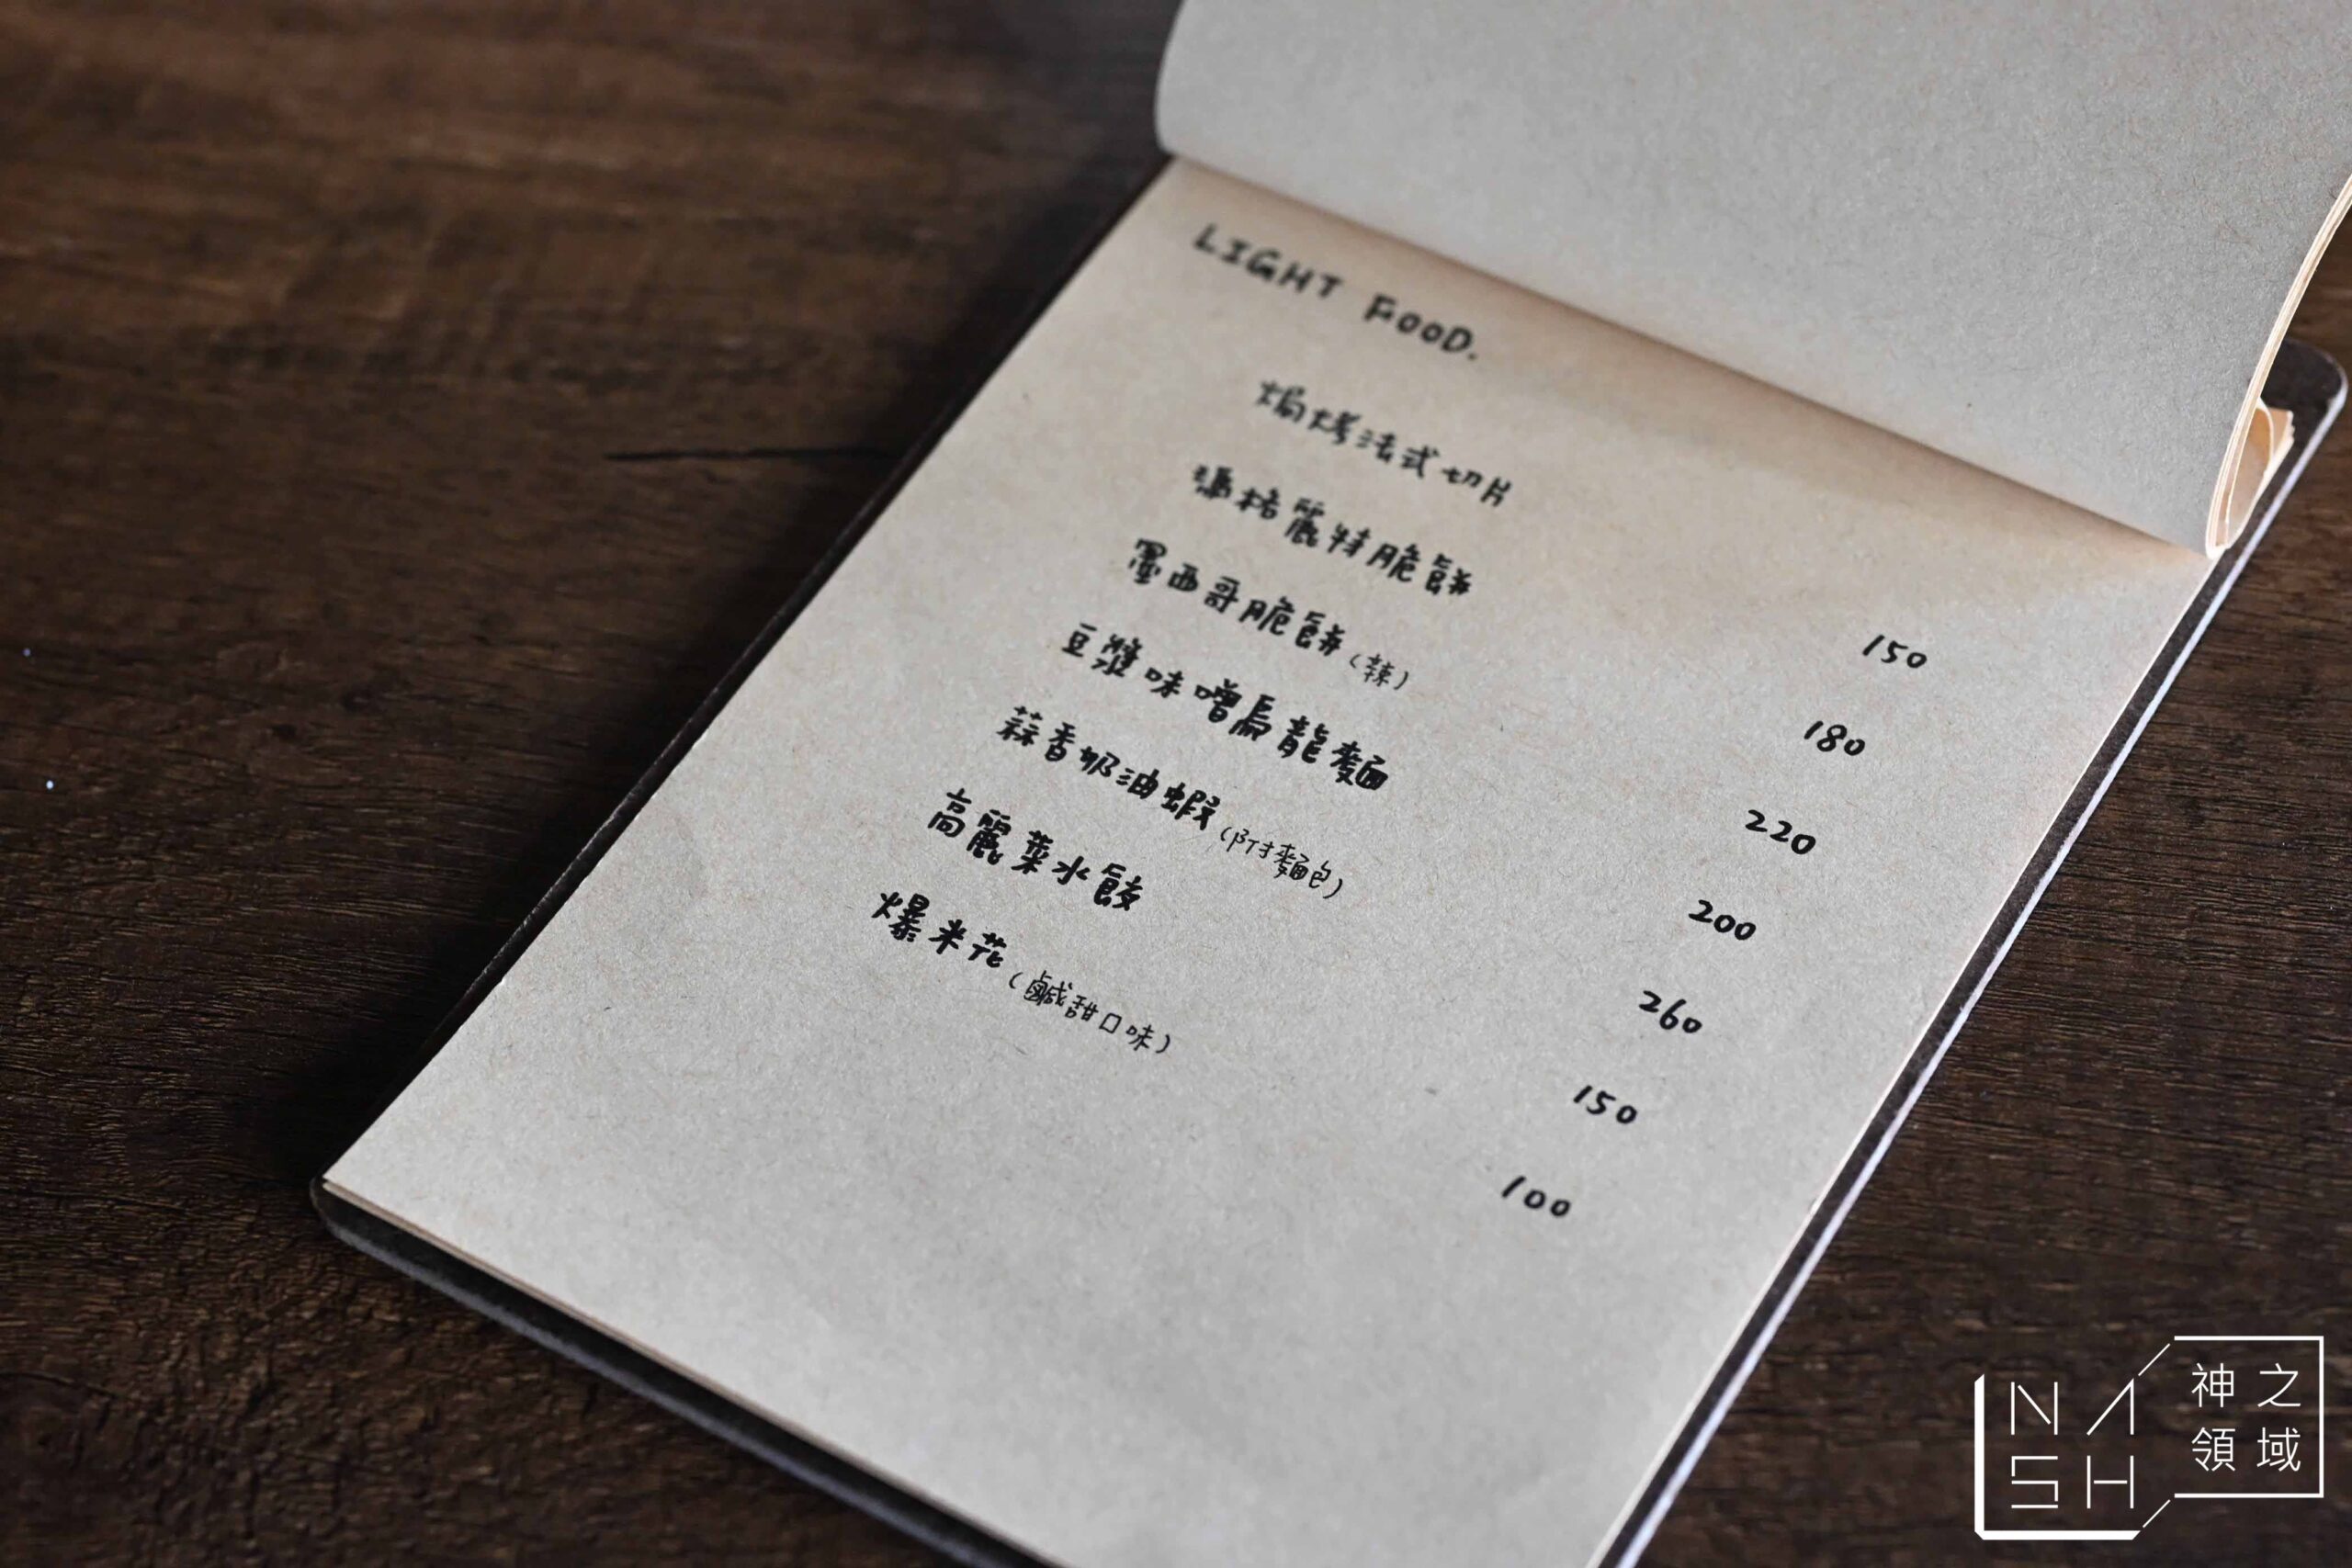 LIGHT FOOD.
焗烤法式切片 150
瑪格麗特脆餅 180
墨西哥脆餅(辣) 220
豆漿味噌烏龍麵 200
蒜香奶油蝦(附麵包) 260
高麗菜水餃 150
爆米花(鹹甜口味) 100
NASH
神之
領域